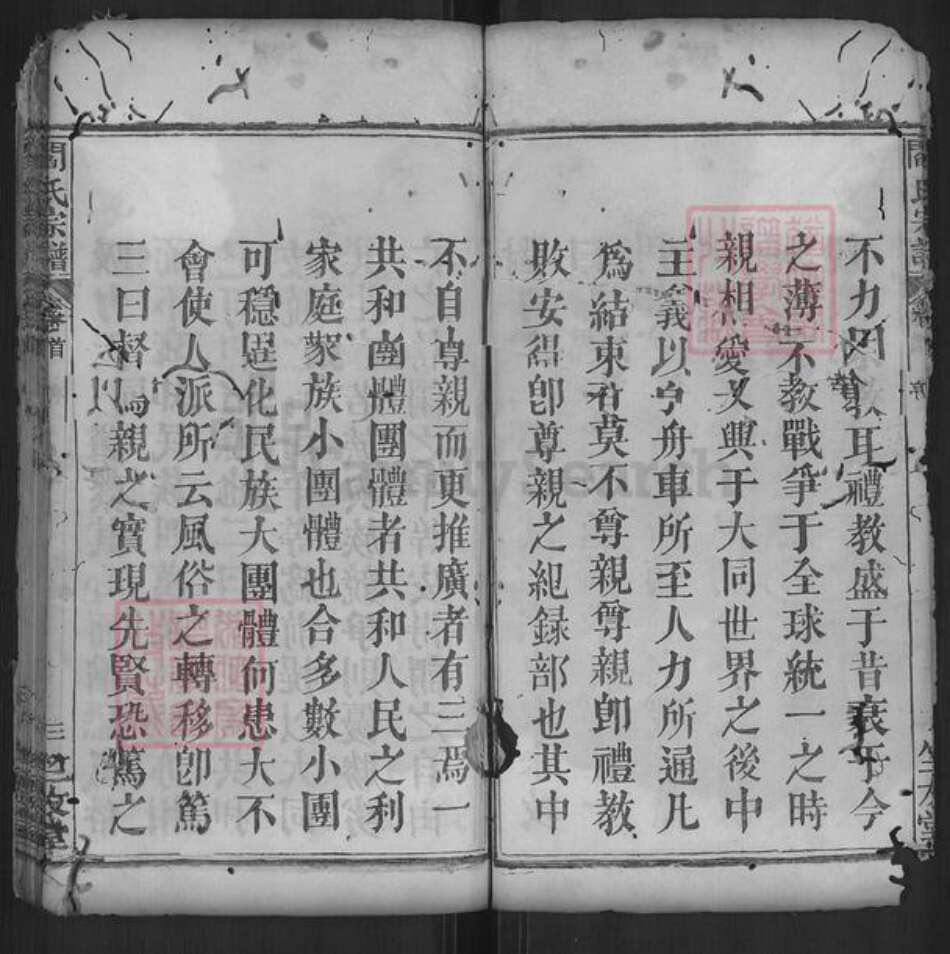 不力因 耳禮教盛于昔衰于今
之薄 不教戰爭于全球統一之時
親相愛又興于大同世界之後中
主義以 舟車所至人力所通凡
爲結束 莫不尊親尊親卽禮教
敗安 卽尊親之紀録部也其中
不自尊親而更推廣者有三焉一
共和 體團體者共和人民之利
家庭家族小團體也合多數小團
可穩 化民族大團體何患大不
會使人派所云風俗之轉移卽篤
三曰督 親之實現先賢恐篤之
閻氏宗譜
卷首
三